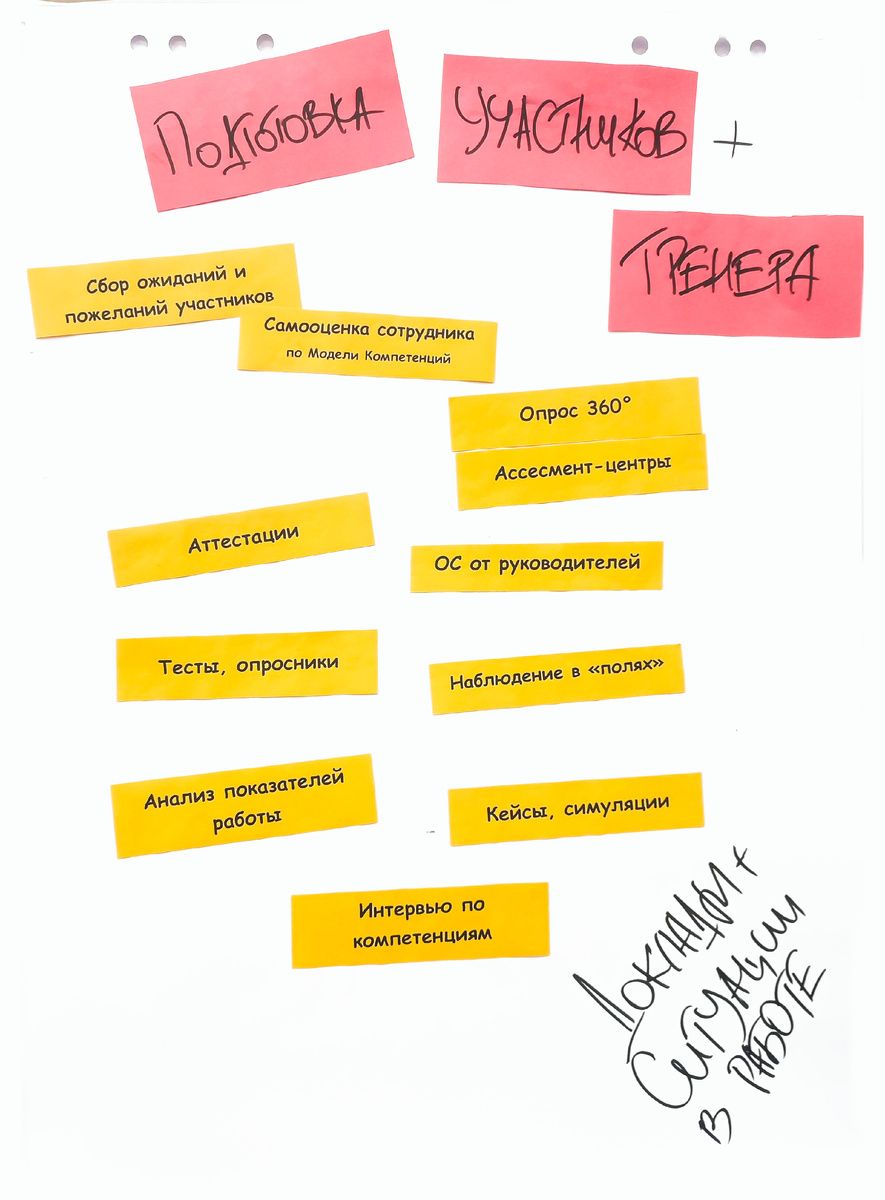 ПОДГОТОВКА
УЧАСТНИКОВ +
ТРЕНЕРА
Сбор ожиданий и
пожеланий участников
Самооценка сотрудника
по Модели Компетенций
Опрос 360°
Ассесмент-центры
Аттестации
ОС от руководителей
Тесты, опросники
Наблюдение в «полях»
Анализ показателей
работы
Кейсы, симуляции
Интервью по
компетенциям
ДОКЛАДЫ +
СИТУАЦИИ
В РАБОТЕ